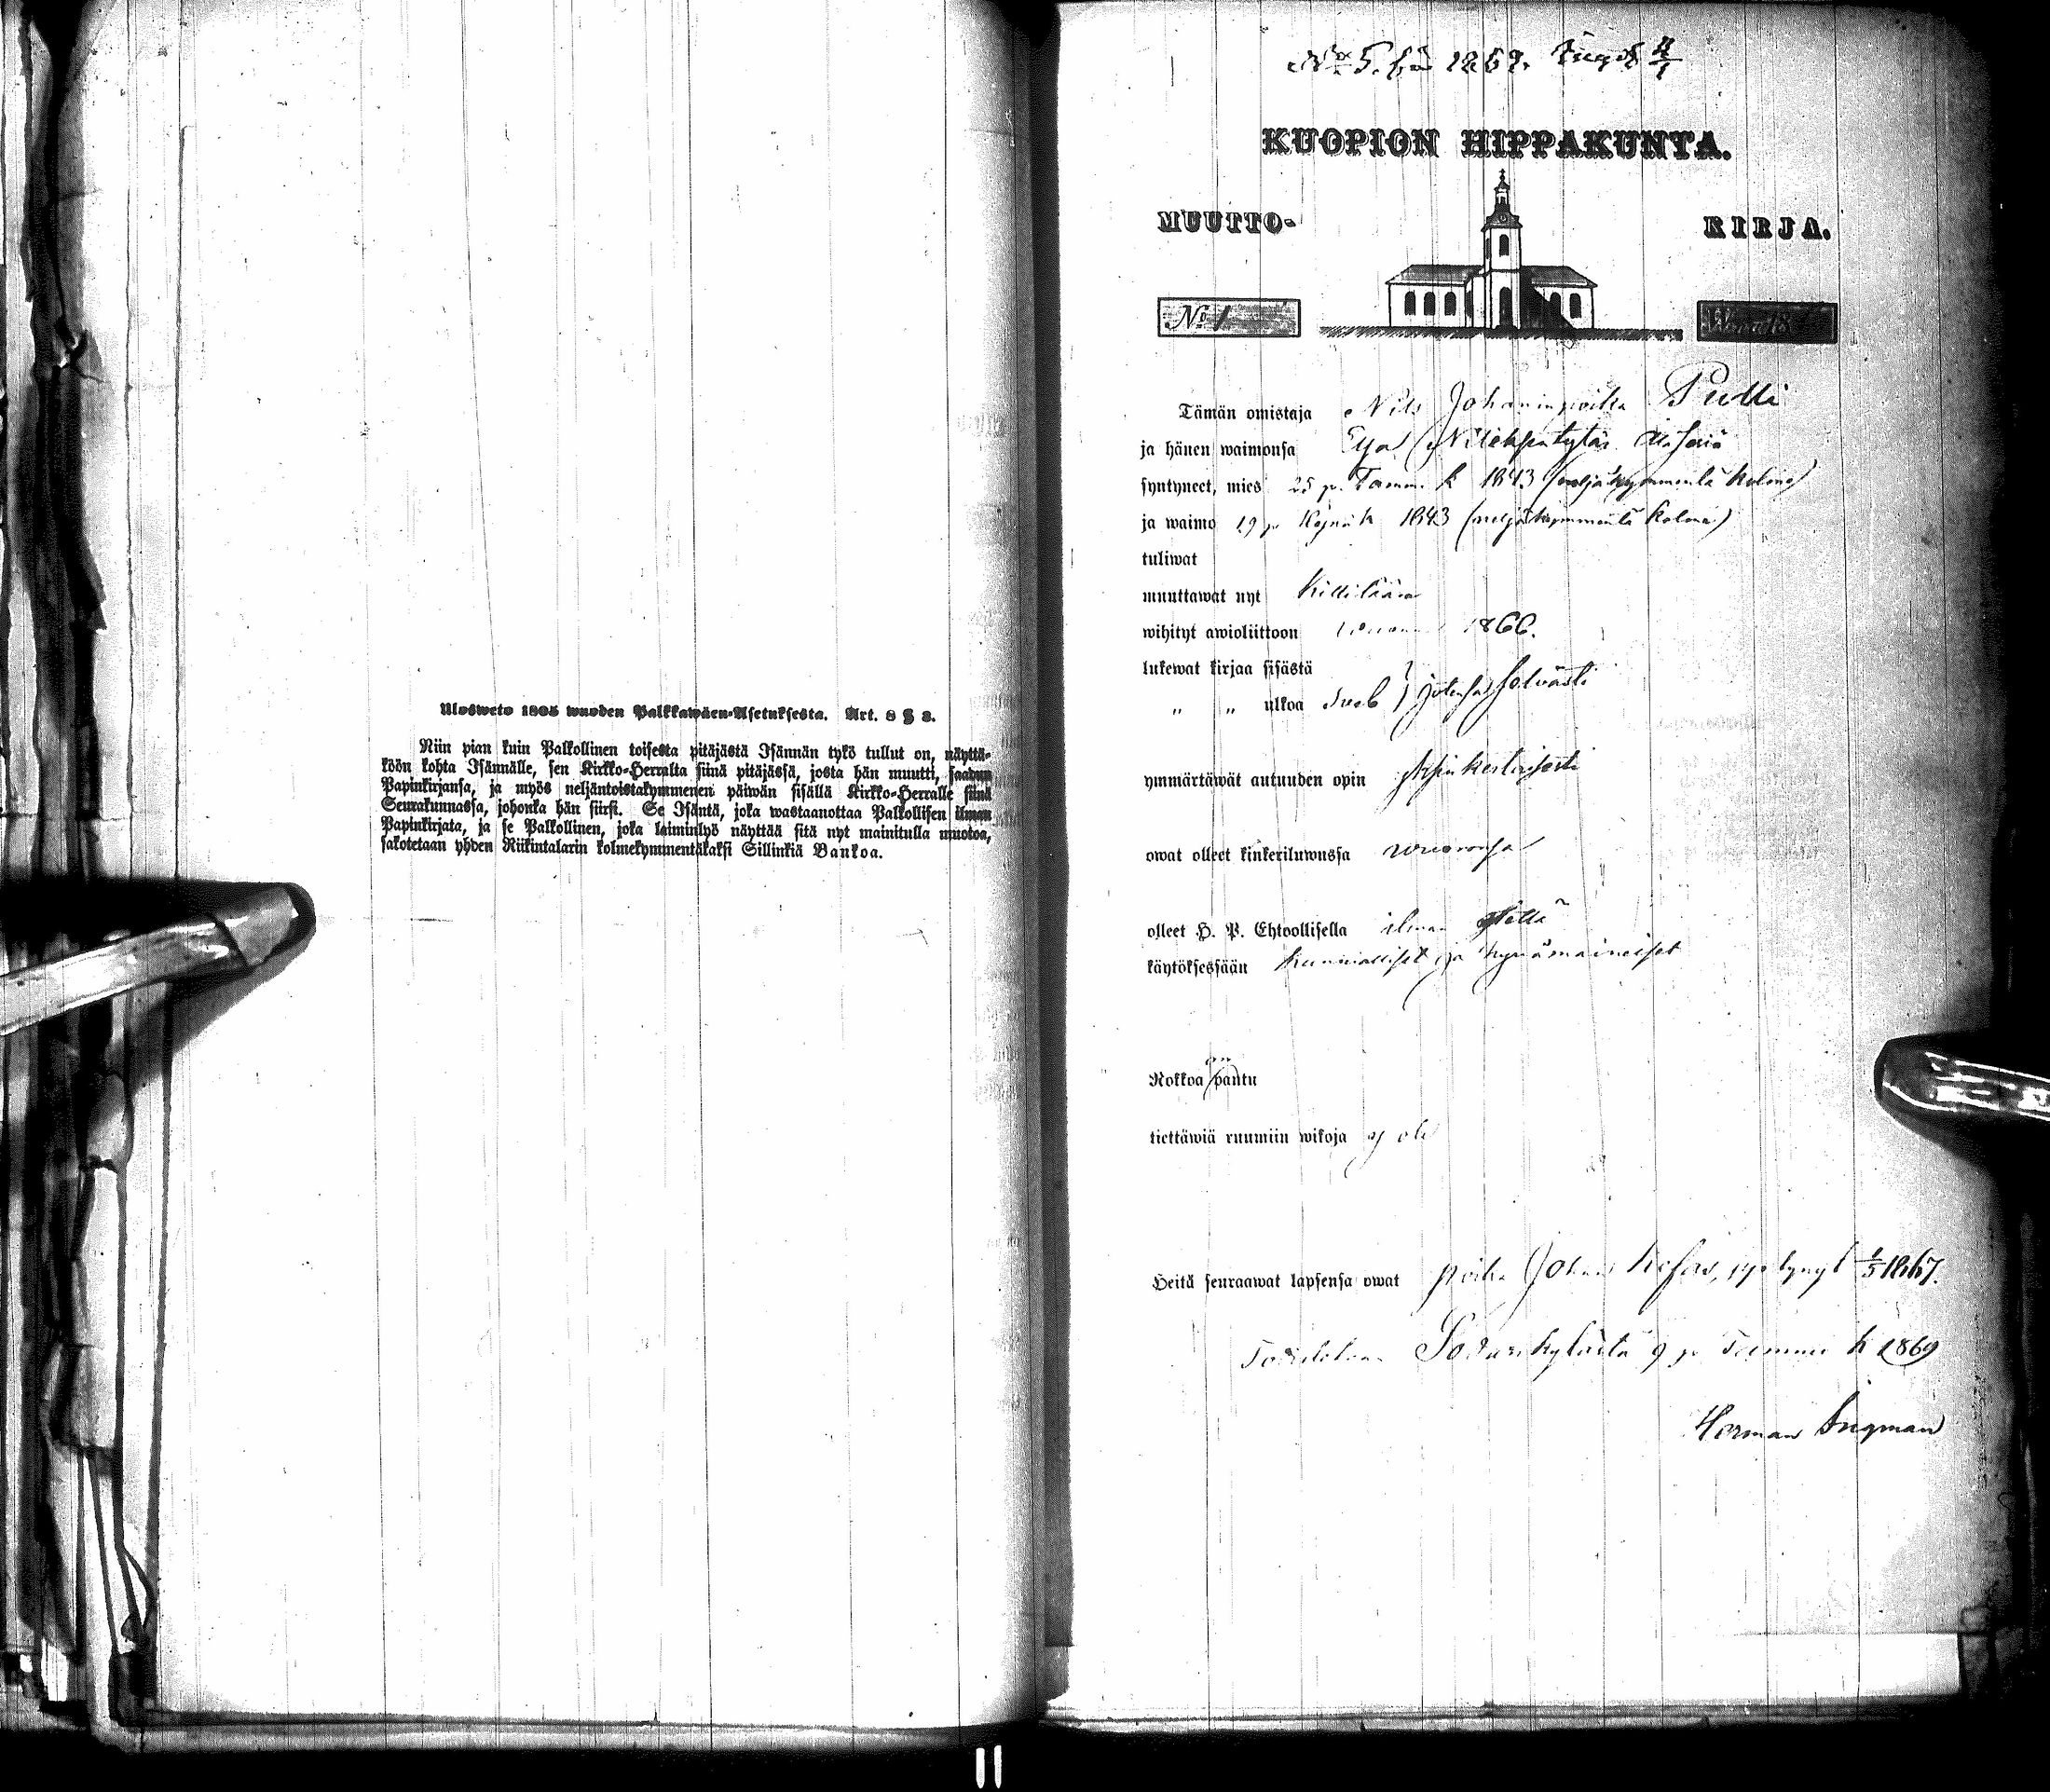 Ulosweto 1805 wuoden Palkkawäen-Asetuksesta. Art. 8 § 3.
Niin pian kuin Palkollinen toisesta pitäjästä Isännän tykö tullut on, näyttä-
köön kohta Isännälle, sen Kirkko-Herralta siinä pitäjässä, josta hän muutti, saadun
Papinkirjansa, ja myös neljäntoistakymmenen päiwän sisällä Kirkko-Herralle siinä
Seurakunnassa, johonka hän siirsi. Se Isäntä, joka wastaanottaa Palkollisen ilman
Papinkirjata, ja se Palkollinen, joka laiminlyö näyttää sitä nyt mainitulla muotoa,
sakotetaan yhden Riikintalarin kolmekymmentäkaksi Sillinkiä Bankoa.
No 5. 1869.
KUOPION HIPPAKUNTA.
MUUTTO- KIRJA.
No 1 Wuon. 18
Tämän omistaja Nils Johaninpoika Pulli
ja hänen waimonsa
syntyneet, mies 25 p. Tamm. k 1843 (neljäkymmentä kolme)
ja waimo 19 p. 1843 (neljäkymmentä kolme)
tuliwat
muuttawat nyt Kittilään
wihityt awioliittoon wuonna 1866.
lukewat kirjaa sisästä
„ „ ulkoa
ymmärtäwät autuuden opin yksinkertaisesti
owat olleet kinkeriluwussa
olleet H. P. Ehtoollisella ilman
käytöksessään kunnialliset ja hywämaineiset
Rokkoa on pantu
tiettäwiä ruumiin wikoja ej ole
Heitä seuraawat lapsensa owat poika Johan Kefas, syntynyt 1/5 1867.
Todistetaan Sodankylästä 9 p Tammi k 1869
Herman Ingman
11